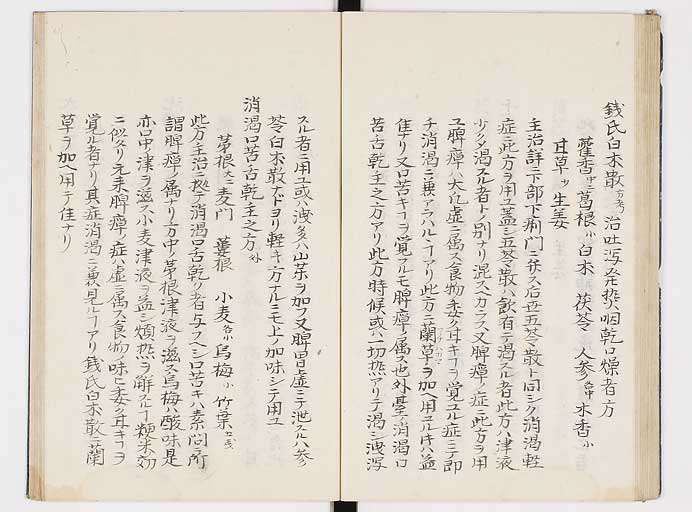 錢氏白朮散 治吐瀉発熱咽乾口燥者方
藿香 葛根小 白朮 茯苓 人参各中 木香小
甘草少 生姜
主治詳ニ下部下痢門ニ弁ス 五苓散ト同シク消渇軽
症ニ此方ヲ用ユ蓋シ五苓散ハ飲有テ渇スル者此方ハ津液
少ク渇スル者トノ別ナリ混スヘカラス又脾瘅ノ症ニ此方ヲ用
ユ脾瘅ハ 虚ニ属ス食物 甘キコヲ覚ユル症ニテ即
チ消渇ニ兼アラハルヽコアリ此方ニ蘭草ヲ加ヘ用ユルキハ益
佳ナリ又口苦キコヲ覚ルモ脾瘅ノ属ス也外臺ニ消渇口
苦舌乾 之方アリ此方時候或ハ一切熱アリテ渇シ洩瀉
スル者ニ用ユ或ハ洩多ハ山薬ヲ加フ又脾胃虚ニテ泄スルハ参
苓白朮散ナドヨリ軽キ方ナルニモ上ノ加味シテ用ユ
消渇口苦舌乾 之方外
茅根大 麦門 蔞根 小麦各小 烏梅小 竹葉
此方主治ニ拠テ消渇口舌乾ク者ニ与フヘシ口苦キハ素問ニ所
謂脾瘅ノ属ナリ方中ノ茅根津液ヲ滋ス烏梅ハ酸味是
亦口中津ヲ滋ス小麦津液ヲ益シ煩熱ヲ解スルコ粳米ノ効
ニ似タリ元来脾瘅ノ症ハ虚ニ属ス食物ノ味ヒ 甘キコヲ
覚ル者ナリ其症消渇ニ兼見ルヽコアリ錢氏白朮散ニ蘭
草ヲ加ヘ用テ佳ナリ